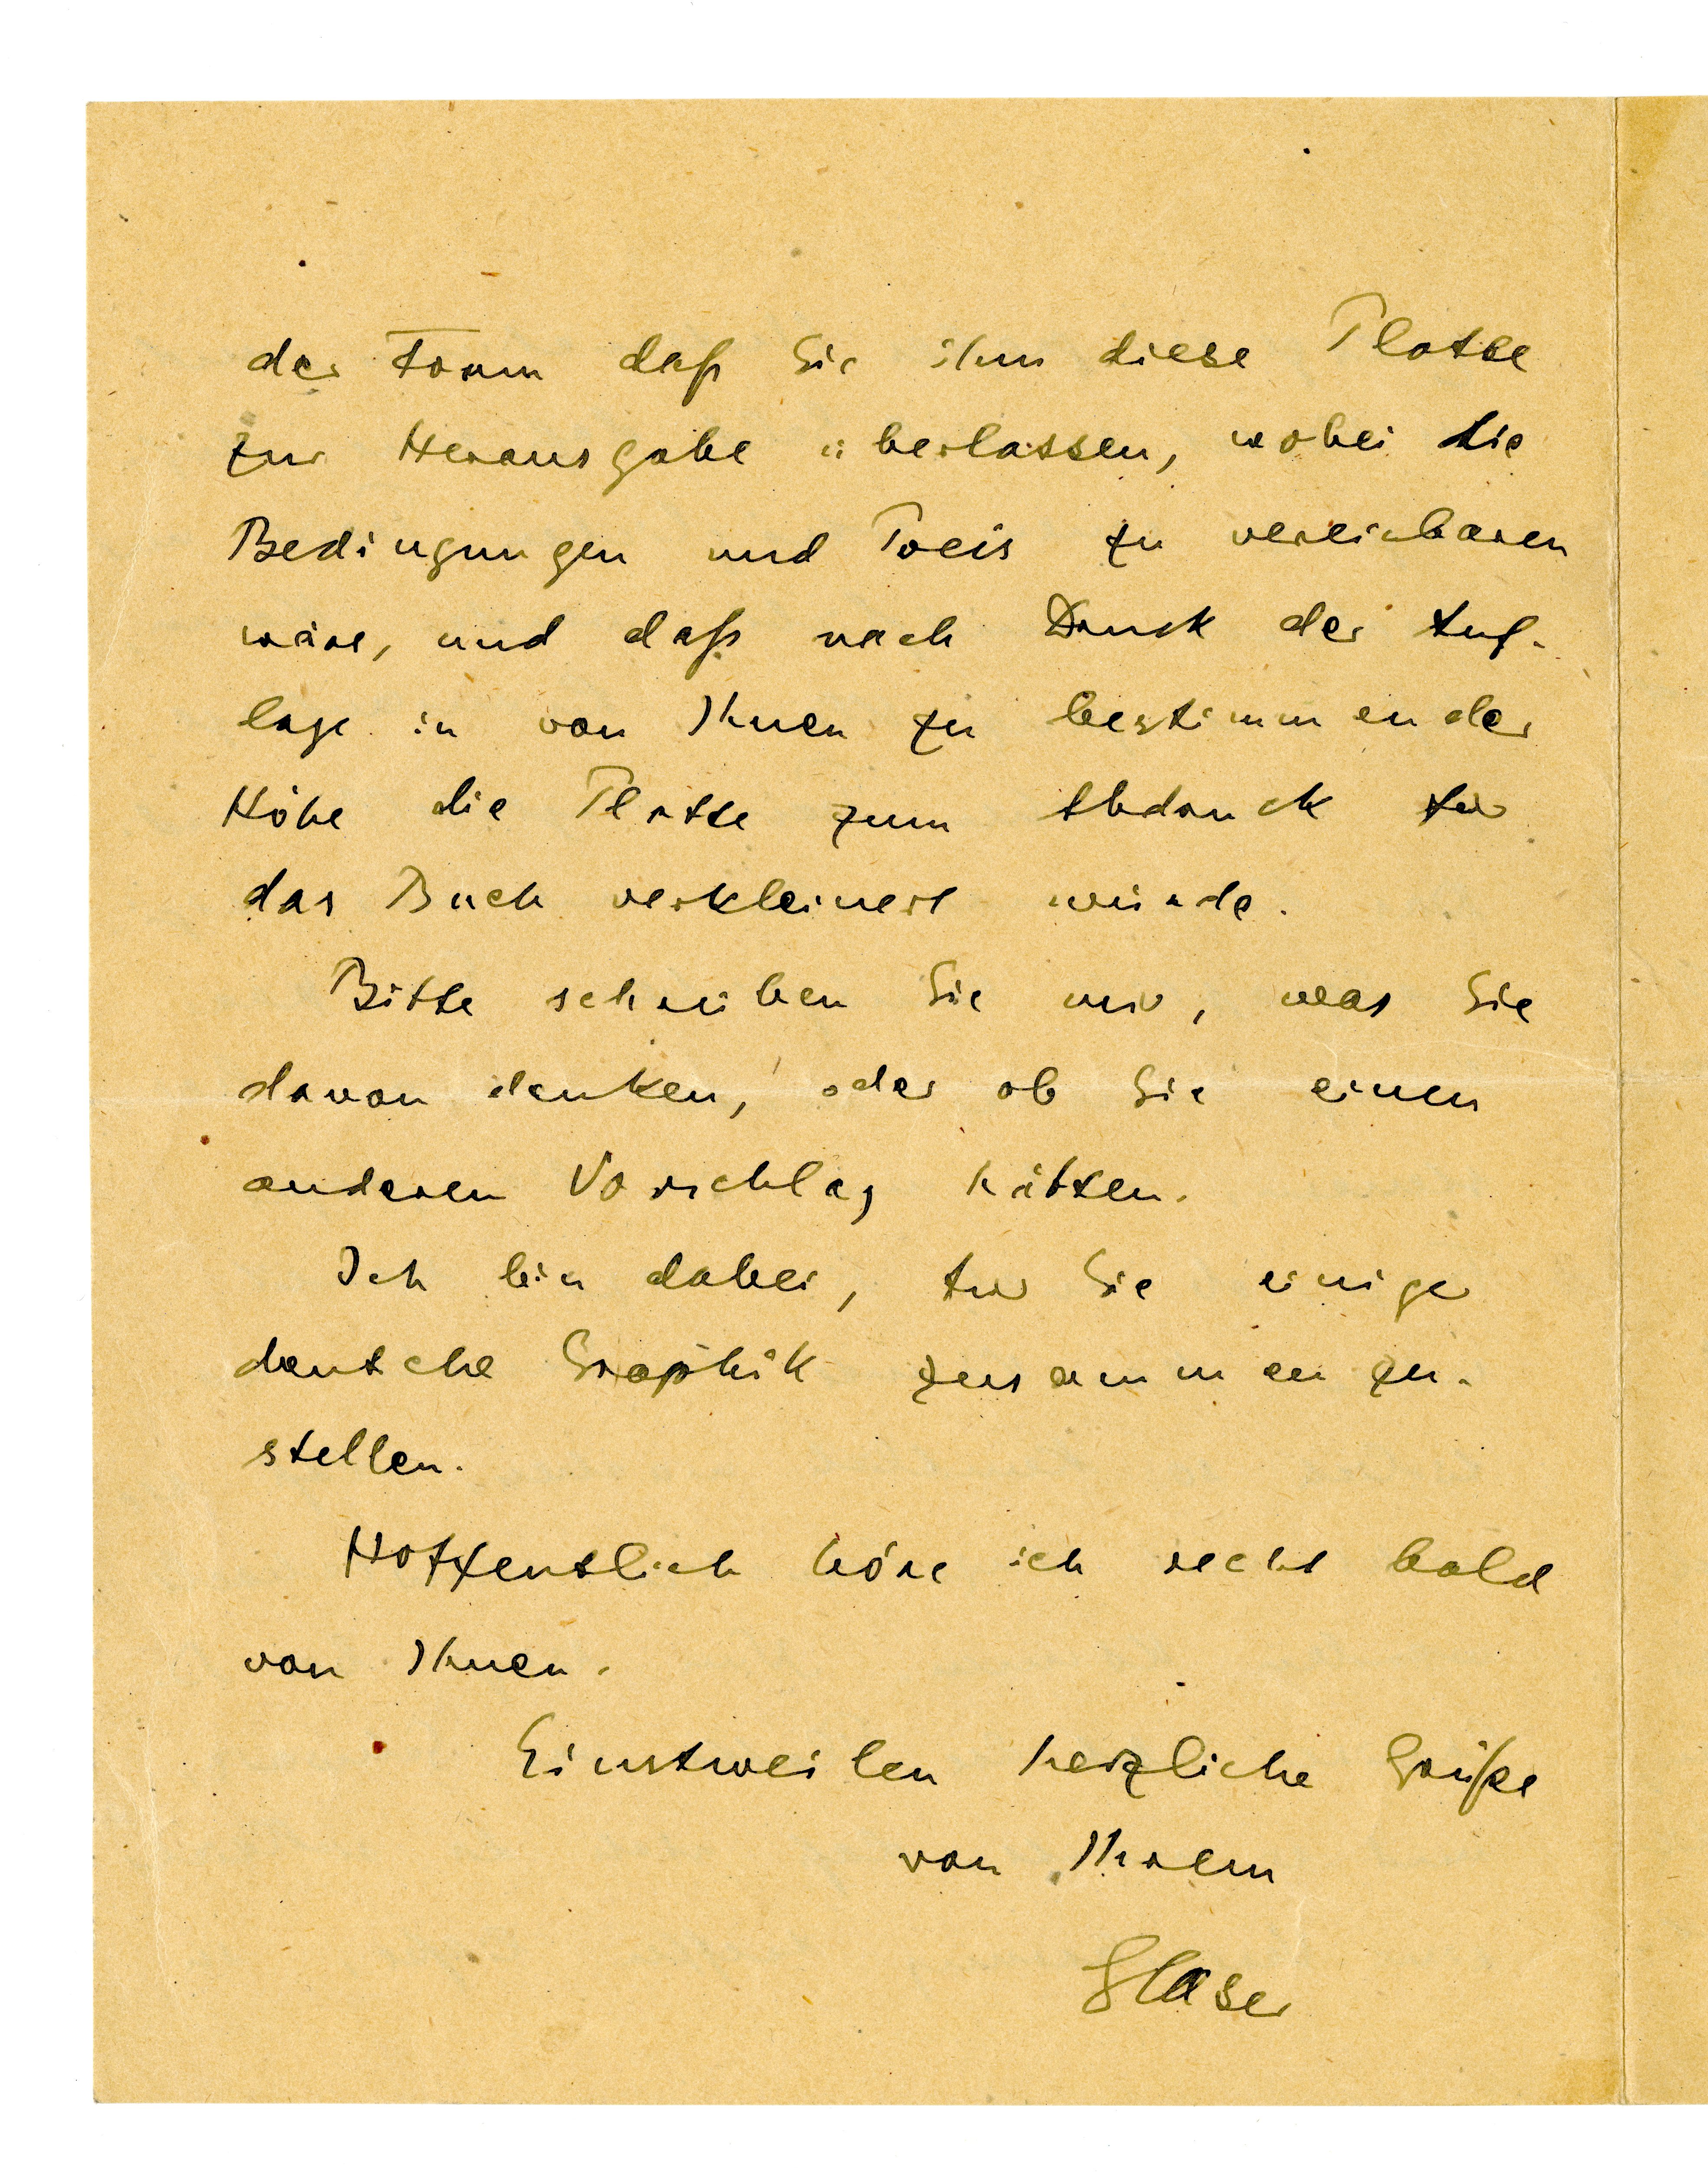 der Form daß Sie ihm diese Platte
zur Herausgabe überlassen, wobei die
Bedingungen und Preis zu vereinbaren
wäre, und daß nach Druck der Auf-
lage in von Ihnen zu bestimmender
Höhe die Platte zum Abdruck für
das Buch verkleinert würde.
Bitte schreiben Sie mir, was Sie
davon denken, oder ob Sie einen
anderen Vorschlag hätten.
Ich bin dabei, für Sie einige
deutsche Graphik zusammenzu-
stellen.
Hoffentlich höre ich recht bald
von Ihnen.
Einstweilen herzliche Grüße
von Ihrem
Glaser